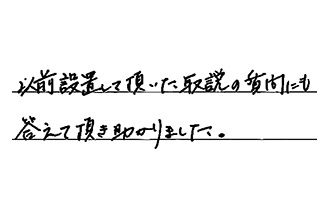 以前設置して頂いた取説の質問にも
答えて頂き助かりました。